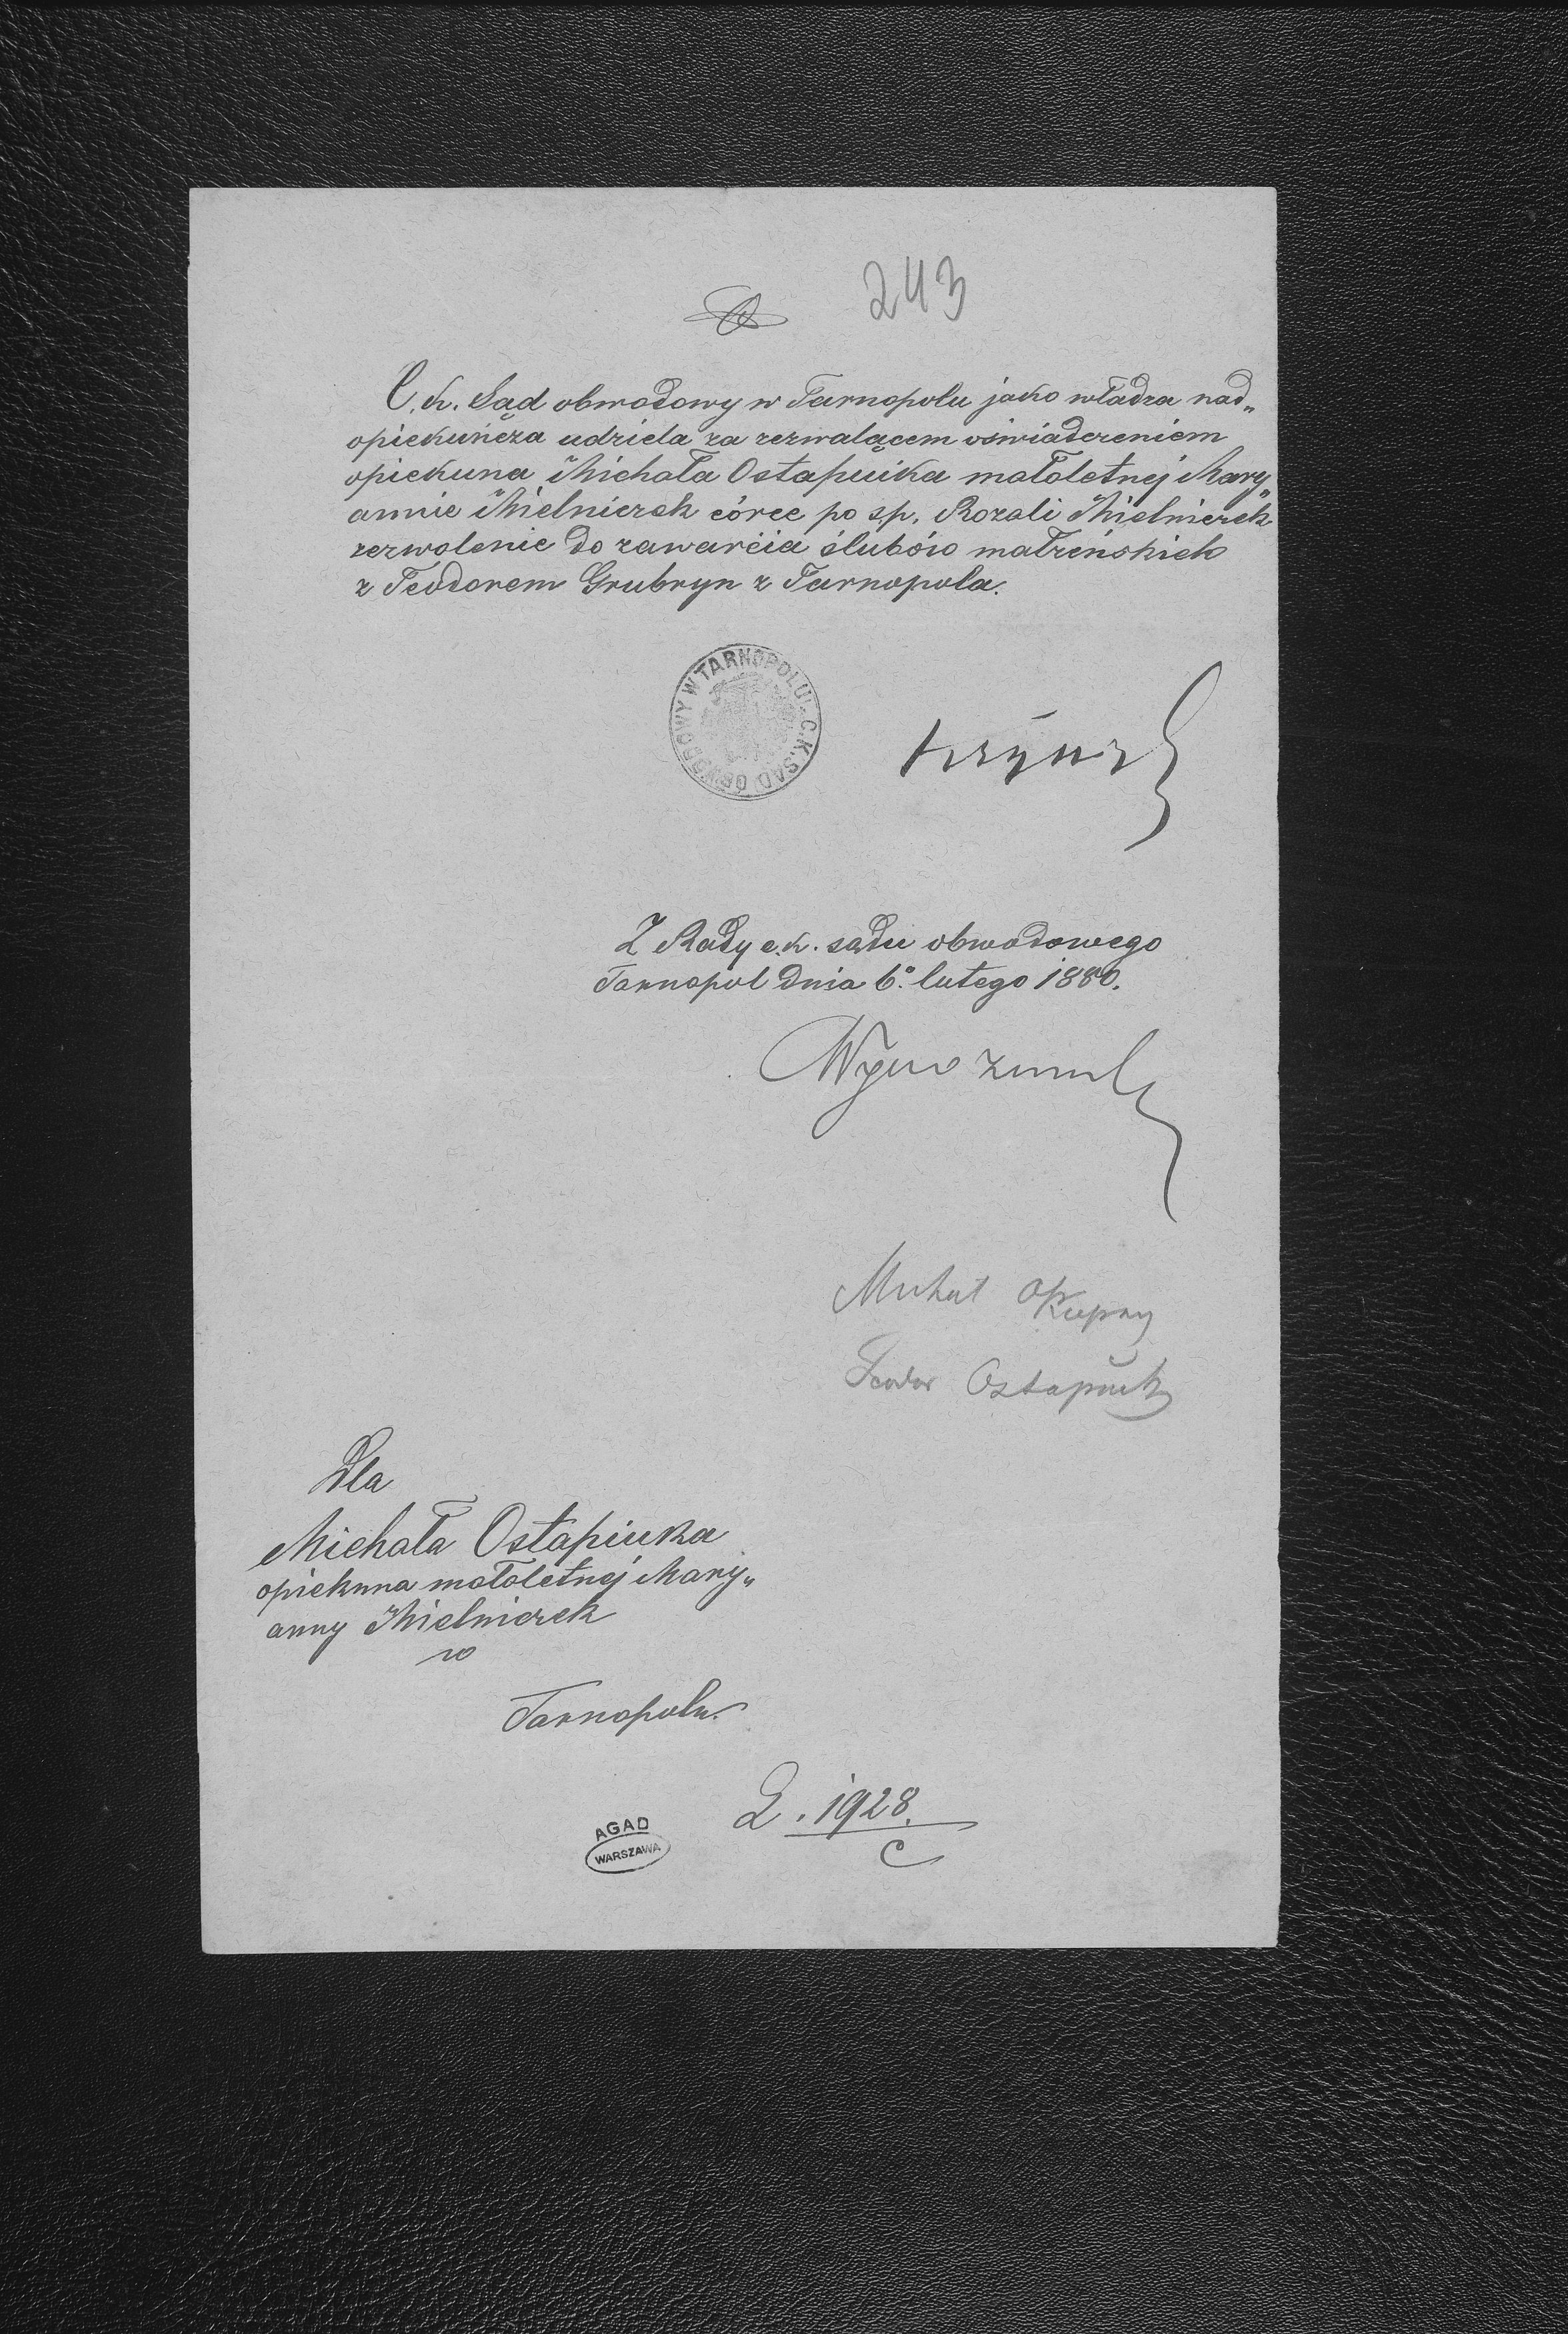 243
C. k. Sąd obwodowy w Tarnopolu jako władza nad„
opiekuńcza udziela za zezwalącem oświadczeniem
opiekuna Michała Ostapiuka małoletnej Mary„
annie Mielniczek córce po sp. Rozali Mielniczek
zezwolenie do zawarcia ślubów małżeńskich
z Teodorem Hrubryn z Tarnopola.
C.K. SĄD OBWODOWY W TARNOPOLU
Z Rady c. k. sądu obwodowego
Tarnopol dnia 6° lutego 1880.
Michał
Teodor Ostapiuk
Dla
Michała Ostapiuka
opiekuna małoletnej Mary„
anny Mielniczek
w
Tarnopolu.
L. 1928.
C
AGAD
WARSZAWA